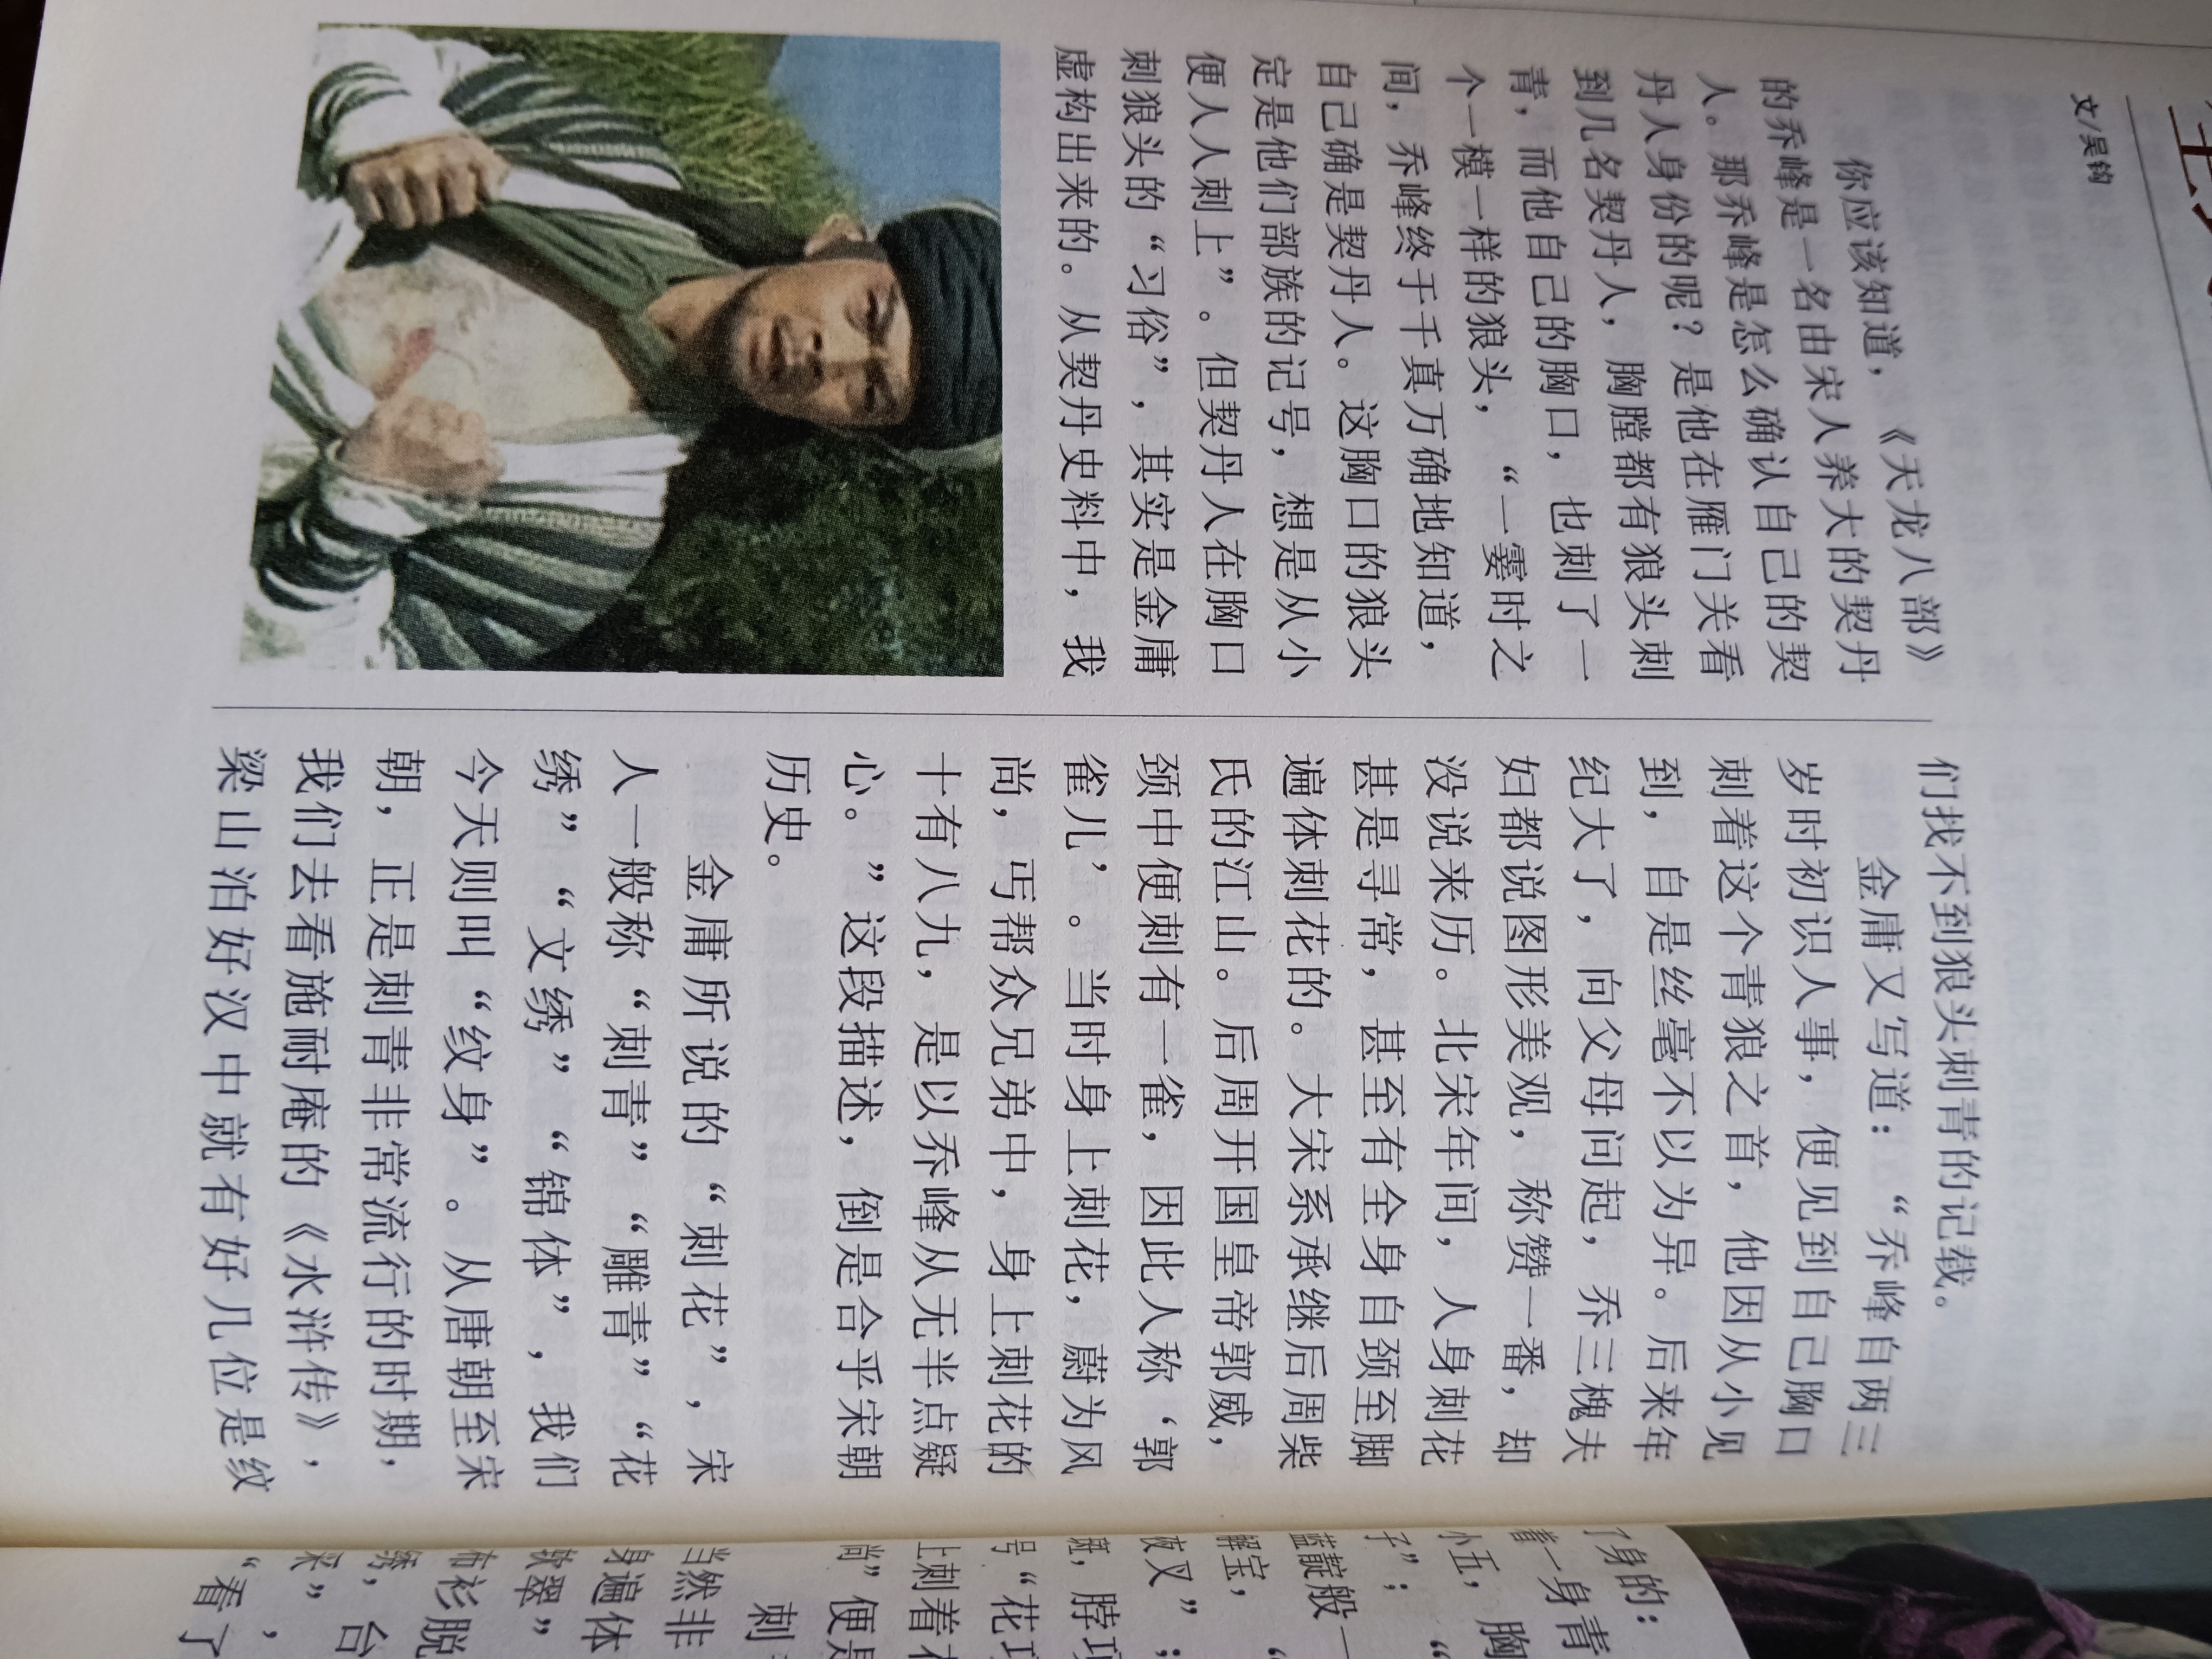 文/吴钩
你应该知道，《天龙八部》
的乔峰是一名由宋人养大的契丹
人。那乔峰是怎么确认自己的契
丹人身份的呢？是他在雁门关看
到几名契丹人，胸膛都有狼头刺
青，而他自己的胸口，也刺了一
个一模一样的狼头，“一霎时之
间，乔峰终于千真万确地知道，
自己确是契丹人。这胸口的狼头
定是他们部族的记号，想是从小
便人人刺上”。但契丹人在胸口
刺狼头的“习俗”，其实是金庸
虚构出来的。从契丹史料中，我
们找不到狼头刺青的记载。
金庸又写道：“乔峰自两三
岁时初识人事，便见到自己胸口
刺着这个青狼之首，他因从小见
到，自是丝毫不以为异。后来年
纪大了，向父母问起，乔三槐夫
妇都说图形美观，称赞一番，却
没说来历。北宋年间，人身刺花
甚是寻常，甚至有全身自颈至脚
遍体刺花的。大宋系承继后周柴
氏的江山。后周开国皇帝郭威，
颈中便刺有一雀，因此人称‘郭
雀儿’。当时身上刺花，蔚为风
尚，丐帮众兄弟中，身上刺花的
十有八九，是以乔峰从无半点疑
心。”这段描述，倒是合乎宋朝
历史。
金庸所说的“刺花”，宋
人一般称“刺青”“雕青”“花
绣”“文绣”“锦体”，我们
今天则叫“纹身”。从唐朝至宋
朝，正是刺青非常流行的时期，
我们去看施耐庵的《水浒传》，
梁山泊好汉中就有好几位是纹
了身的：
着一身青
小五，胸
子”；“
蓝靛般一
解宝，“
夜叉”；
斑，脖项
号“花项
上刺着花
尚”便是
刺
当然非
身遍体
软翠”
布衫脱
绣，台
采”，
“看了